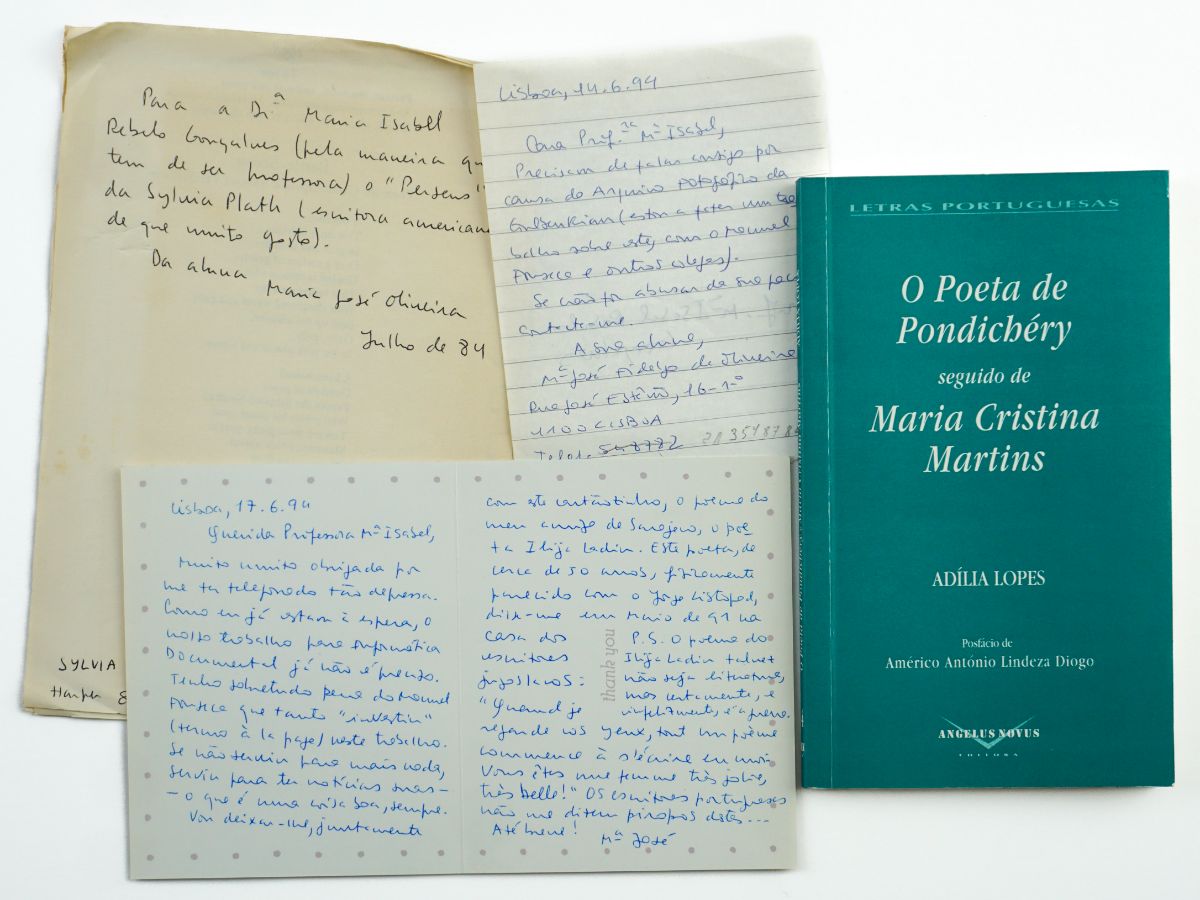 Para a Dr.ª Maria Isabel
Rebelo Gonçalves (pela maneira qu
tem de ser professora) o "Perseus"
da Sylvia Plath (escritora american
de que muito gosto).
Da aluna
Maria José Oliveira
Julho de 84
SYLVIA
Harper 8
Lisboa, 14.6.94
Cara Prof.ra Mª Isabel,
Precisava de falar consigo por
causa do Arquivo Fotográfico da
Gulbenkian (estou a fazer um tra
balho sobre este, com o Manuel
Fonseca e outros colegas).
Se não for abusar da sua paci
contacte-me.
A sua aluna,
Mª José Fidalgo de Oliveira
Rua José Estêvão, 16-1º
1100 LISBOA
Telef. 548782
Lisboa, 17.6.94
Querida Professora Mª Isabel,
Muito muito obrigada por
me ter telefonado tão depressa.
Como eu já estava à espera, o
nosso trabalho para Informática
Documental já não é preciso.
Tenho sobretudo pena do Manuel
Fonseca que tanto "investiu"
(termo à la page) neste trabalho.
Se não serviu para mais nada,
serviu para ter notícias suas-
- o que é uma coisa boa, sempre.
Vou deixar-lhe, juntamente
com este cartãozinho, o poema do
meu amigo de Sarajevo, o poe
ta Ilija Ladin. Este poeta, de
cerca de 50 anos, fisicamente
parecido com o Jorge Listopad,
disse-me em Maio de 91 na
casa dos
escritores
jugoslavos:
"Quand je
regarde vos yeux, tout un poème
commence à s'écrire en moi.
Vous êtes une femme très jolie,
très belle!" Os escritores portugueses
não me dizem piropos destes...
Até breve!
Mª José
thank you
P.S. O poema do
Ilija Ladin talvez
não seja literatura,
mas certamente, e
infelizmente, é a
LETRAS PORTUGUESAS
O Poeta de
Pondichéry
seguido de
Maria Cristina
Martins
ADÍLIA LOPES
Posfácio de
Américo António Lindeza Diogo
ANGELUS NOVUS
EDITORA